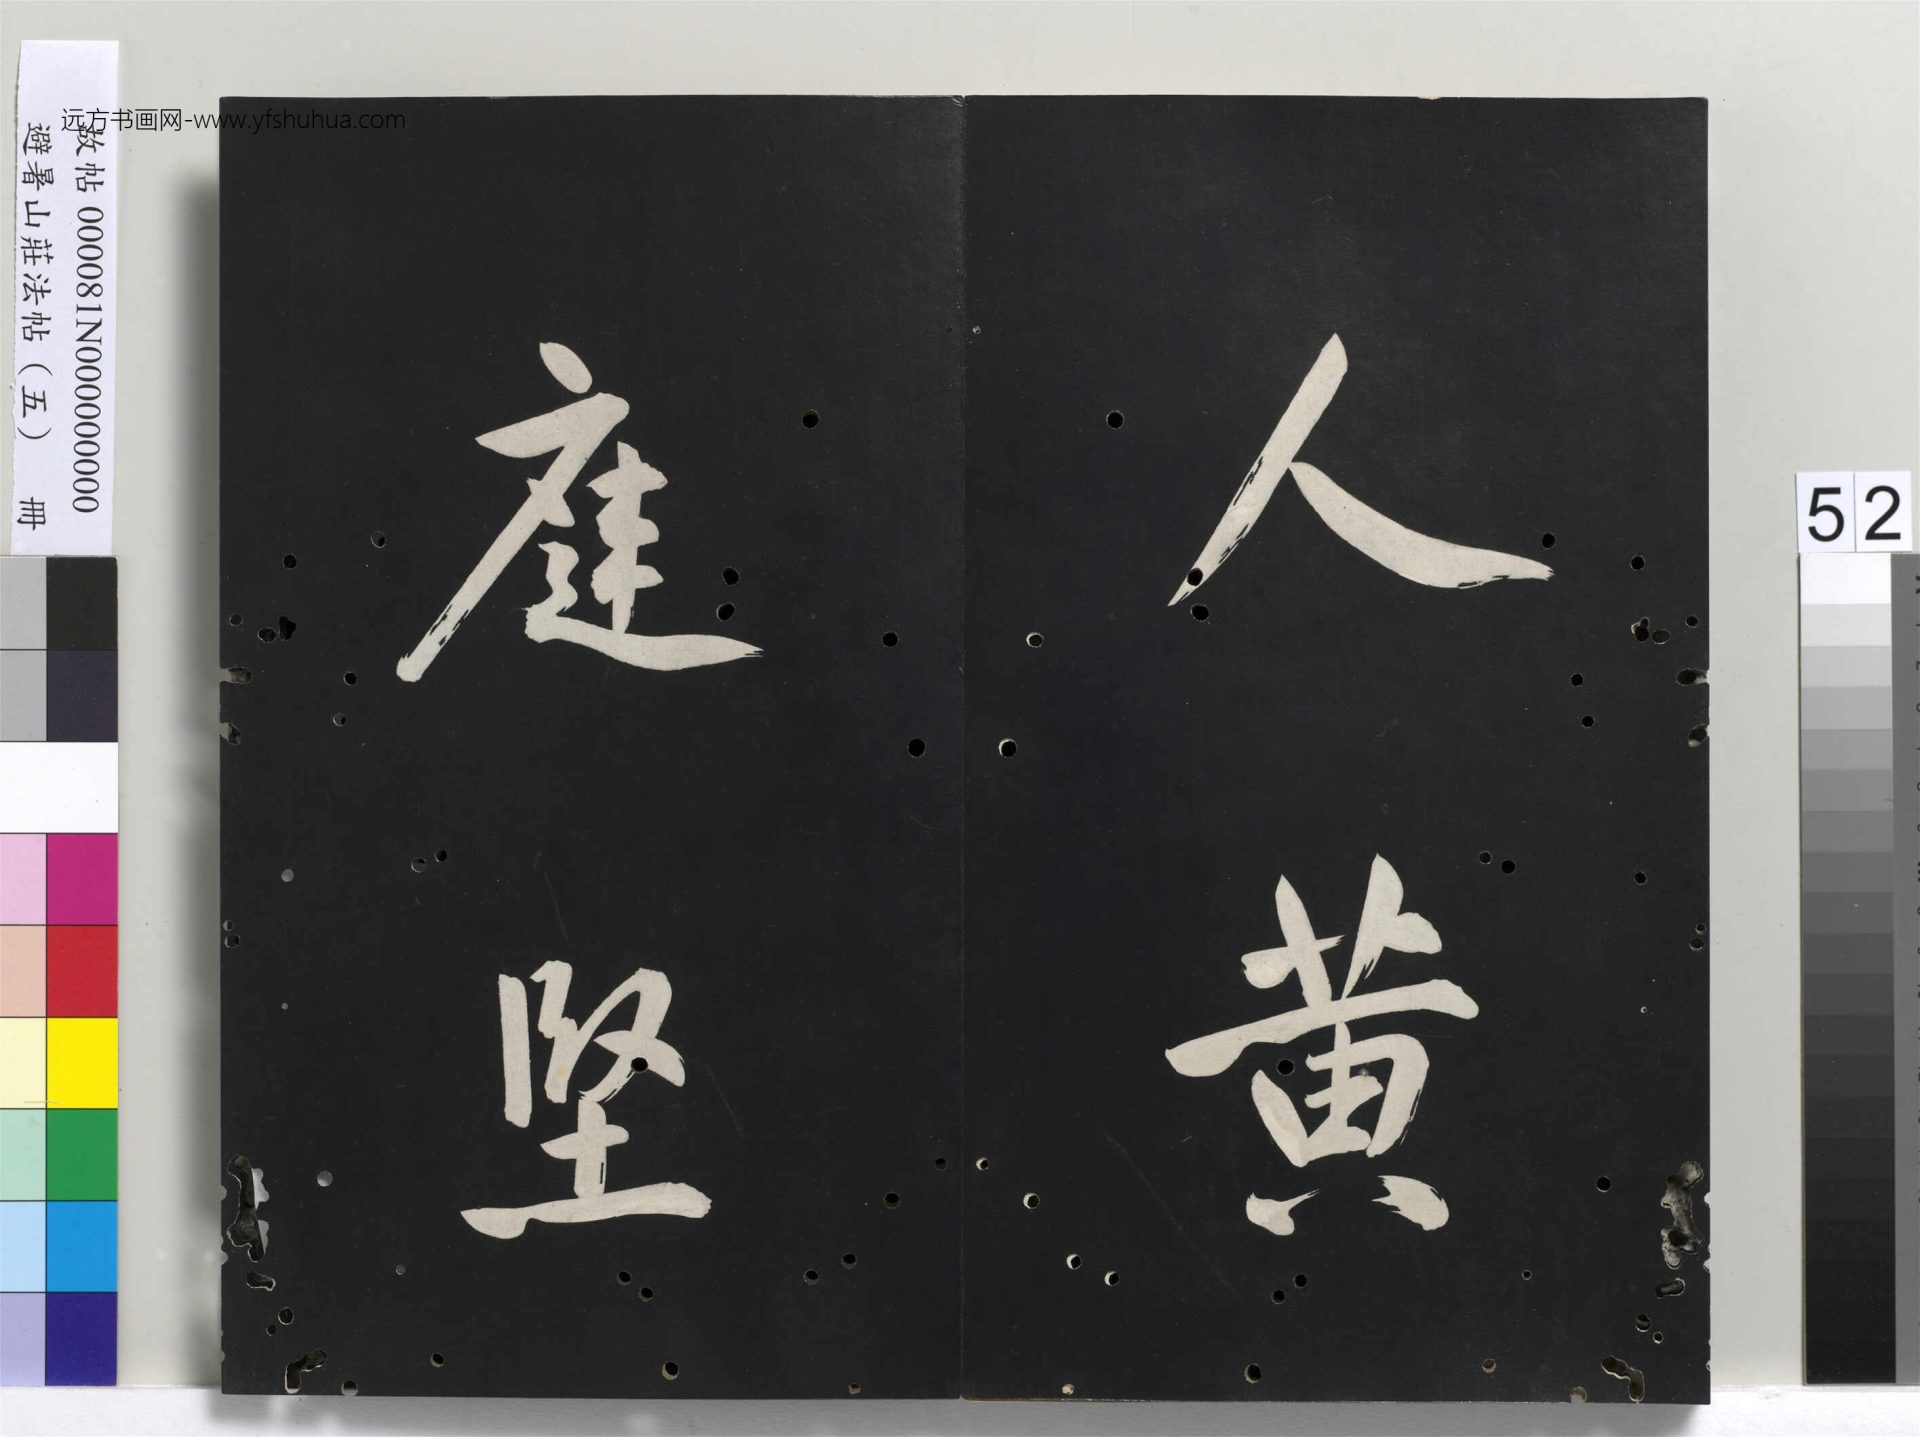 人黄
庭堅
故帖 000081N000000000
避暑山莊法帖（五） 冊
远方书画网-www.yfshuhua.com
52